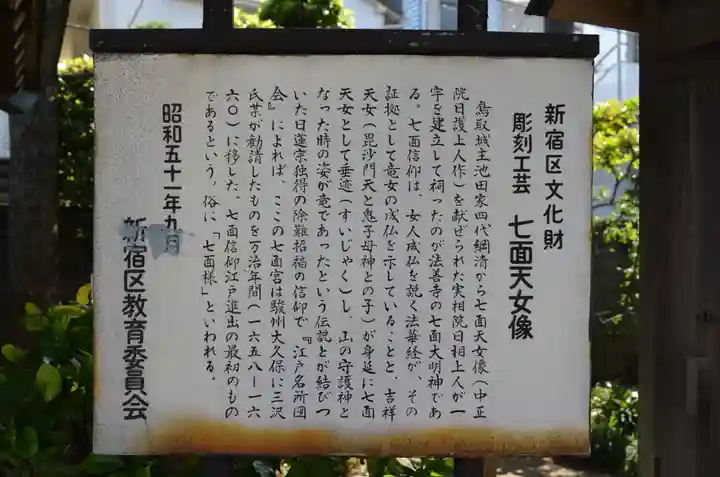 新宿区文化財
彫刻工芸 七面天女像
鳥取城主池田家四代綱清から七面天女像（中正
院日護上人作）を献ぜられた実相院日相上人が一
宇を建立して祠ったのが法善寺の七面大明神であ
る。七面信仰は、女人成仏を説く法華経が、その
証拠として竜女の成仏を示していることと、吉祥
天女（毘沙門天と鬼子母神との子）が身延に七面
天女として垂迹（すいじゃく）し、山の守護神と
なった時の姿が竜であったという伝説とが結びつ
いた日蓮宗独得の除難招福の信仰で『江戸名所図
会』によれば、ここの七面宮は駿州大久保に三沢
氏某が勧請したものを万治年間（一六五八ー一六
六〇）に移した、七面信仰江戸進出の最初のもの
であるという。俗に「七面様」といわれる。
昭和五十一年九月
新宿区教育委員会